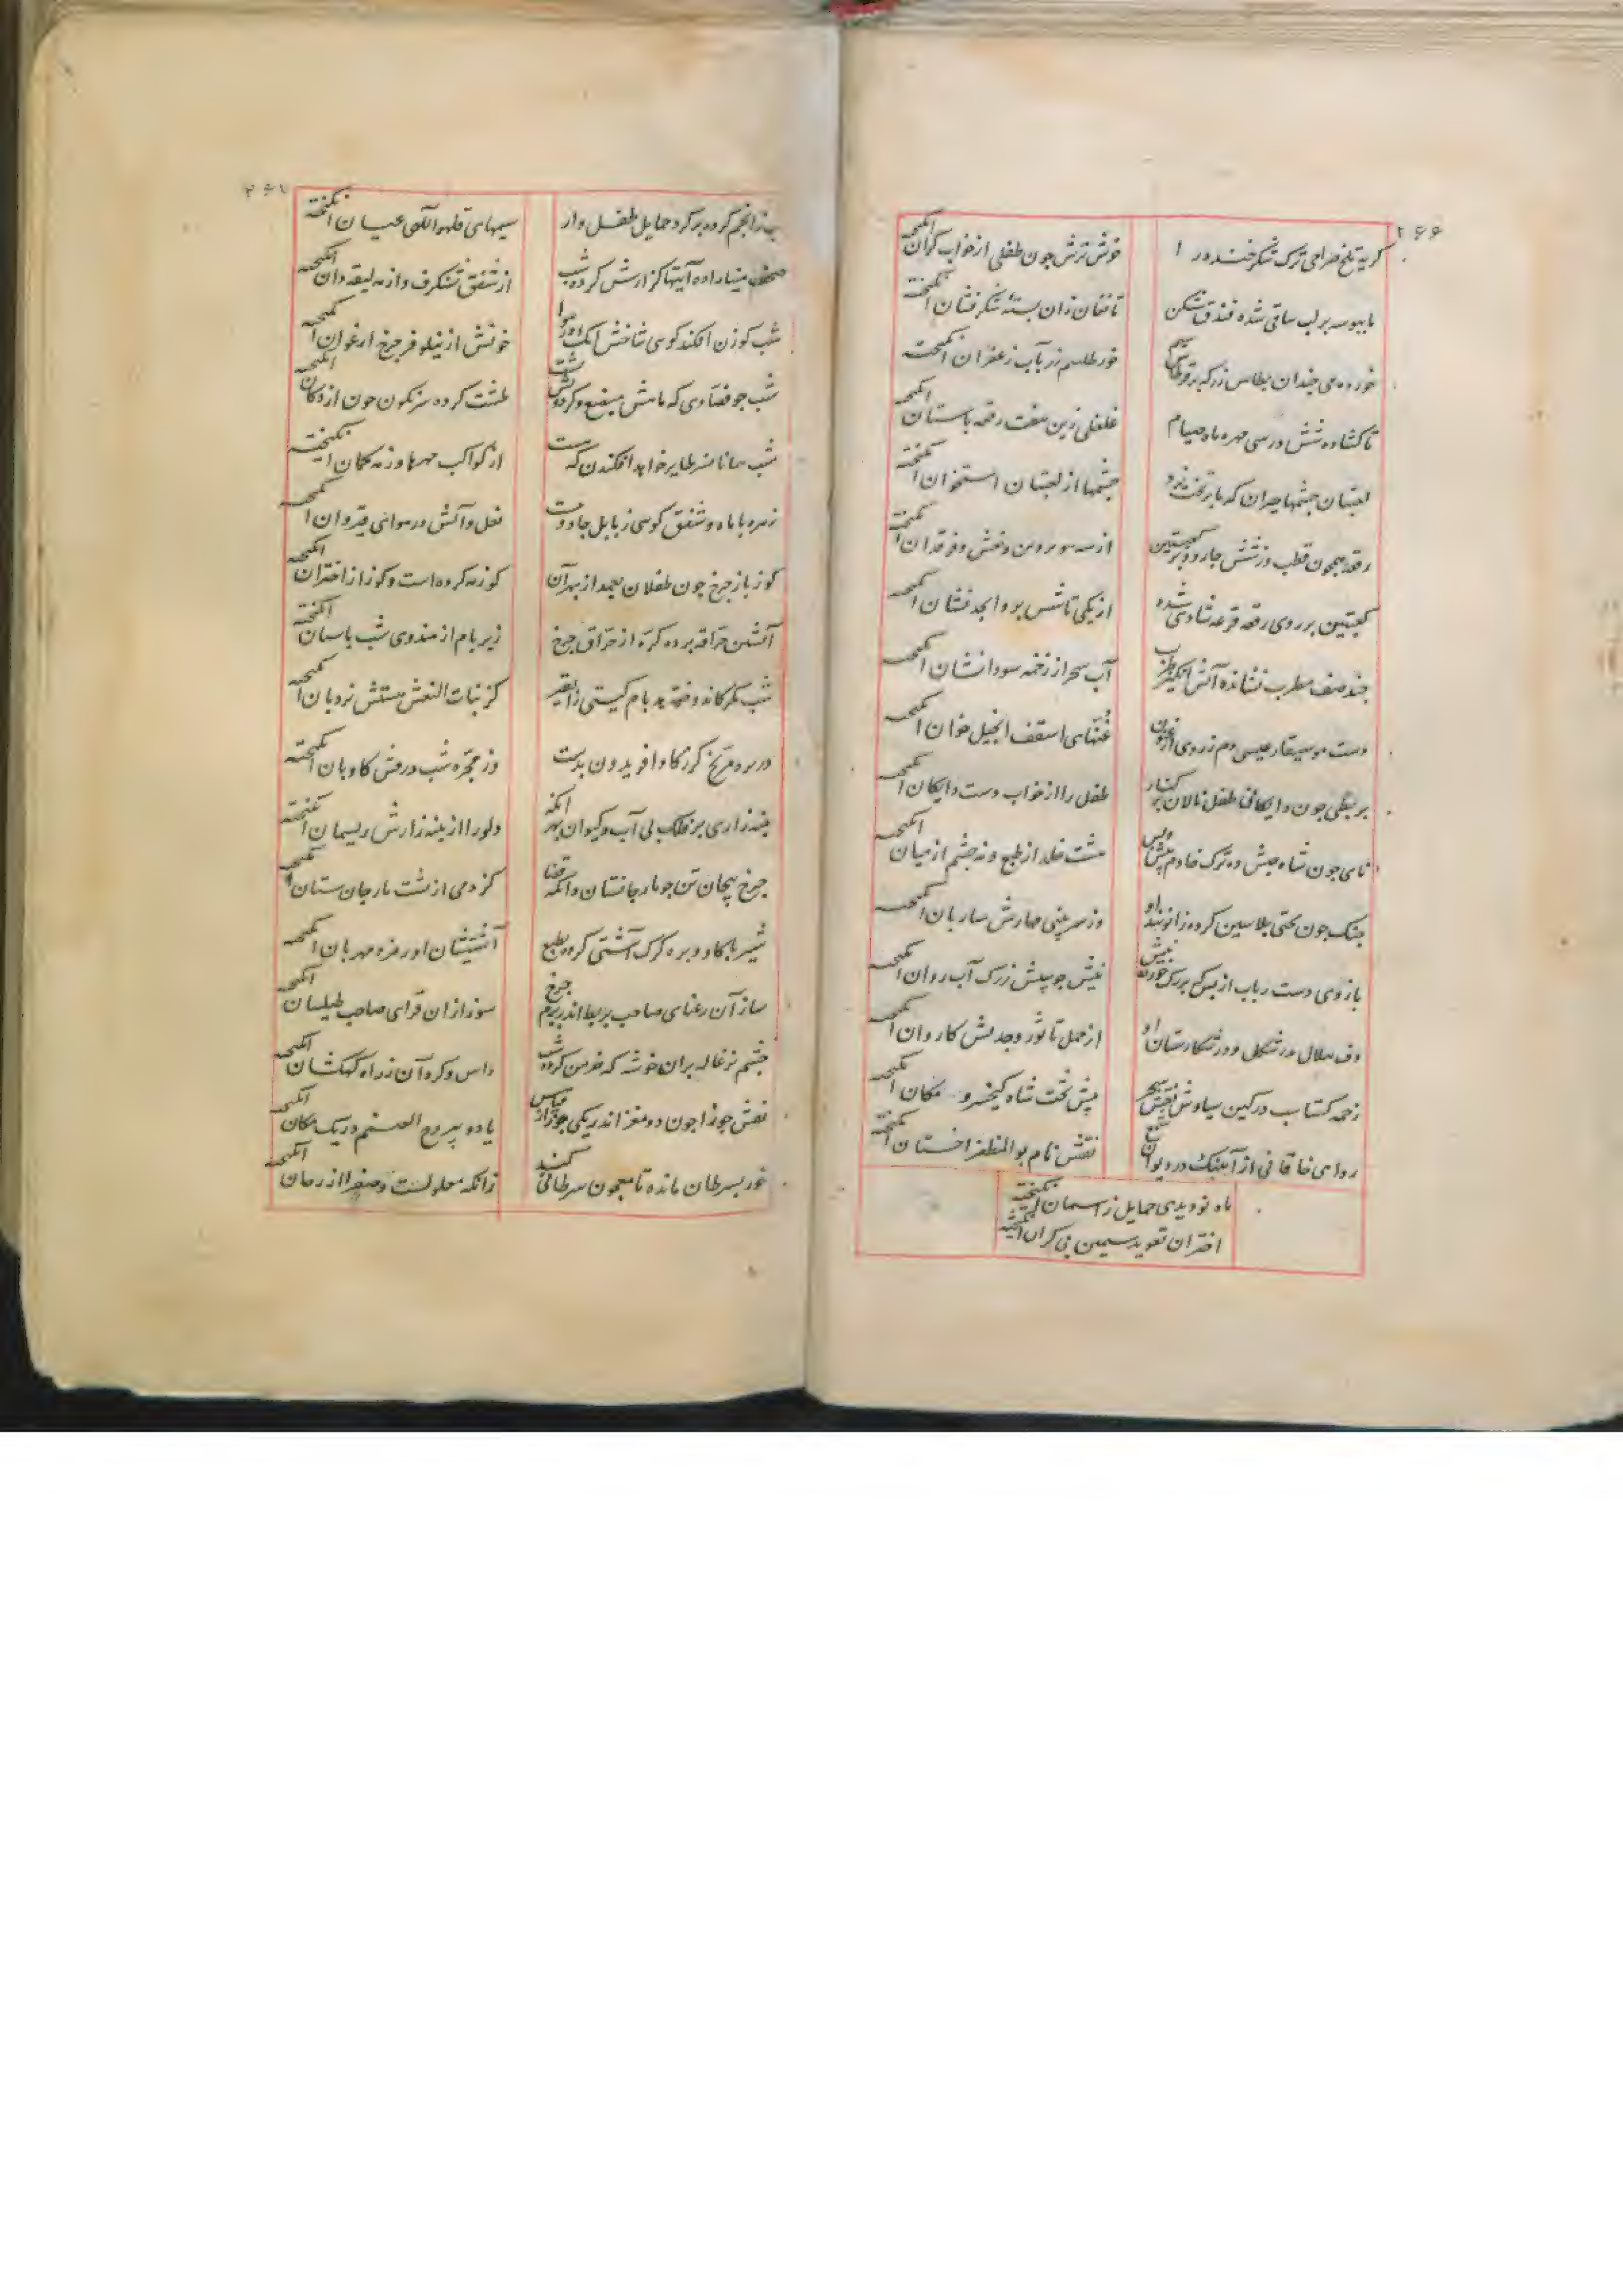 ۲۶۶
کریه تلخ صراحی ترک شکر خنده را
خوش ترش چون طفلی از خواب کران انکیخته
با ببوسه بر لب ساقی شده فندق شکن
تا فغان زان بسته شکر فشان انکیخته
خورده می چندان بطاس زر که بر قرطاس
خور طلسم زر بآب زعفران انکیخته
تا کشاده شش در سی مهره ماه صیام
غلغلی زین هفت رقعه باستان انکیخته
لعبتان چشمها حیران که بر تخت نرد
چشمها از لعبتان استخوان انکیخته
رقعه همچون قطب وز شش چار و دو کعبتین
از سه سو پروین و نعش و فرقدان انکیخته
کعبتین بر روی رقعه قرعه شادی شده
از یکی تا شش بر و ابجد نشان انکیخته
چند صف مطرب نشانده آتش انکیز طرب
آب سحر از زخمه سودا نشان انکیخته
دست موسیقار عیسی دم ز روی ارغنون
غنهای اسقف انجیل خوان انکیخته
بربطی چون دایکانی طفل نالان بر کنار
طفل را از خواب دست دایکان انکیخته
نای چون شاه حبش ده ترک خادم پیش و پس
هشت خلد از طبع و نه چشم از میان انکیخته
چنک چون بختی پلاسین کرده زانو بند او
وز سر بینی مهارش ساربان انکیخته
بازوی دست رباب از بس که بر رک خورده نیش
نیش چوبینش ز رک آب روان انکیخته
دف هلال بدر شکل و در شکارستان او
از حمل تا ثور و جدیش کاروان انکیخته
زخمه کشتاسب در کین سیاوش نقش سحر
پیش تخت شاه کیخسرو مکان انکیخته
راوی خاقانی از آهنک در دیوان سمع
نقش نام بوالمظفر اخستان انکیخته
ماه نو دیدی حمایل ز آسمان انکیخته
اختران تعوید سیمین بی کران انکیخته
شب ز انجم کرده بر کرد حمایل طفل وار
سیمهای قل هو اللهی عیان انکیخته
صحف مینا را ده آیتها کزارش کرده شب
از شفق شنکرف و از مه لیقه دان انکیخته
شب کوزن افکند کوئی شاخش اینک در هوا
خونش از نیلوفر چرخ ارغوان انکیخته
شب چو فصادی که ماهش مبضع و کردون
طشت کرده سرنکون خون از دکان انکیخته
شب همانا نسر طایر خواهد افکندن که هست
از کواکب مهره وز مه کمان انکیخته
زهره با ماه و شفق کوئی ز بابل جادوست
نعل و آتش در هوای قیروان انکیخته
کوزباز چرخ چون طفلان بعید از بهر آن
کوز مه کرده است و کوز از اختران انکیخته
آتشین حراقه برده کره از حراق چرخ
زیر بام از هندوی شب پاسبان انکیخته
شب مکر کاندوخته بد بام کیتی را بقیر
کز بنات النعش هستش نردبان انکیخته
در بره مریخ کرز کاو افریدون بدست
وز مجره شب درفش کاویان انکیخته
پنبه زاری بر فلک بی آب و کیوان بهر آنکه
دلو را از پنبه زارش ریسمان انکیخته
چرخ پیچان تن چو مار جانستان وانکه قضا
کژدمی از پشت مار جان ستان انکیخته
شیر با کاو و بره کرک آشتی کرده بطبع
آشتیشان اورمزد مهربان انکیخته
ساز آن رعنای صاحب بربط اندر بزم چرخ
سوز از آن قرای صاحب طیلسان انکیخته
چشم بزغاله بران خوشه که خرمن کرده شب
داس و کره آن ز راه کهکشان انکیخته
نقش جوزا چون دو مغز اندر یکی جوز از قیاس
یا دو پیروج الصنم در یک مکان انکیخته
خور بسرطان مانده تا معجون سرطانی کند
زانکه معلولست و صفرا از رخان انکیخته